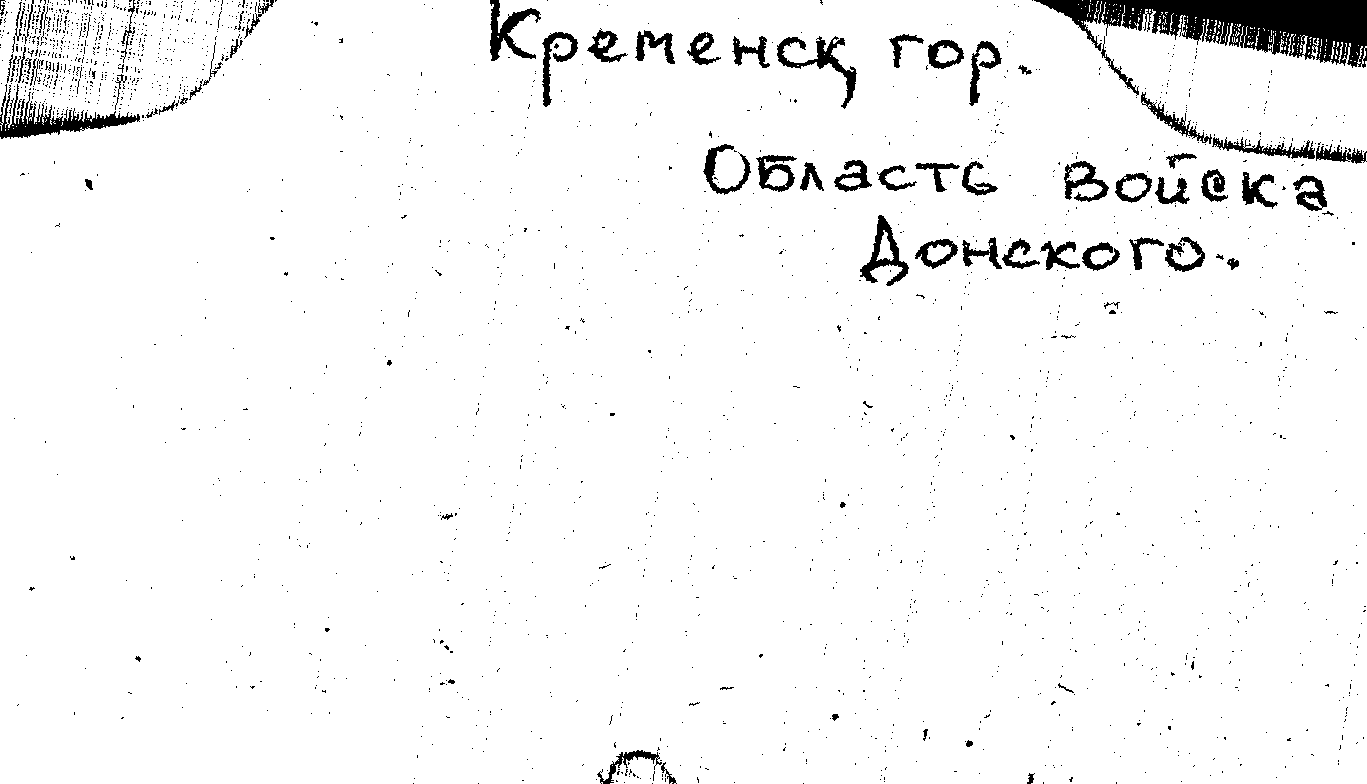 Кременск, гор.
Область Войска
Донского.